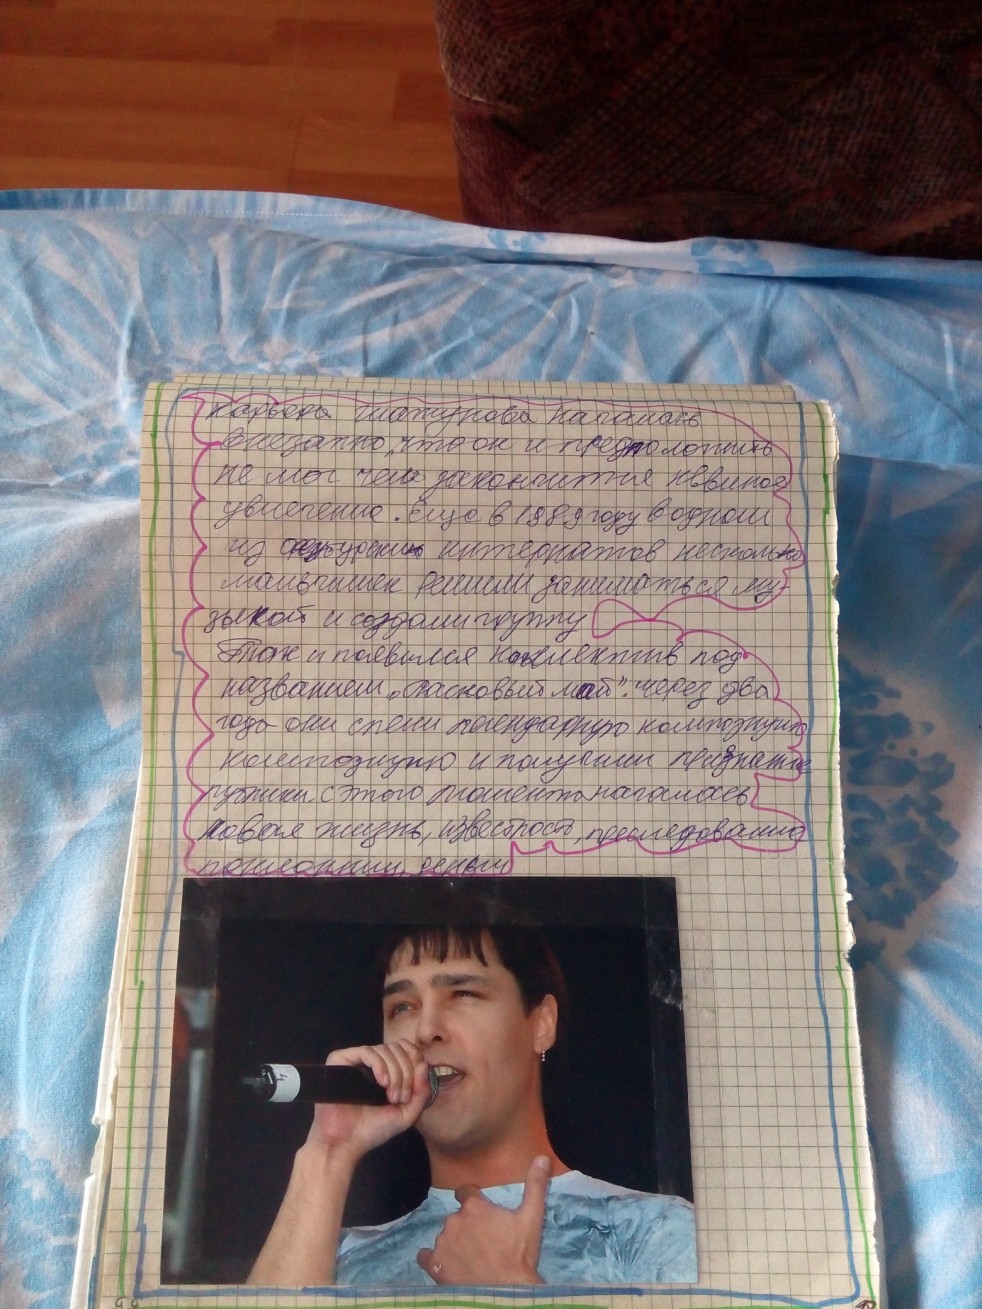 карьера Шатунова началась
внезапно, что он и предположить
не мог чем закончится невиное
увлечение. Еще в 1989 году в одном
из интернатов несколько
мальчишек решили заниматься му-
зыкой и создали группу
Так и появился коллектив под
названием „Ласковый май". через два
года они спели легендарную композицию
композицию и получили признание
публики. с этого момента началась
новая жизнь, известность, преследование
поклонниц, деньги